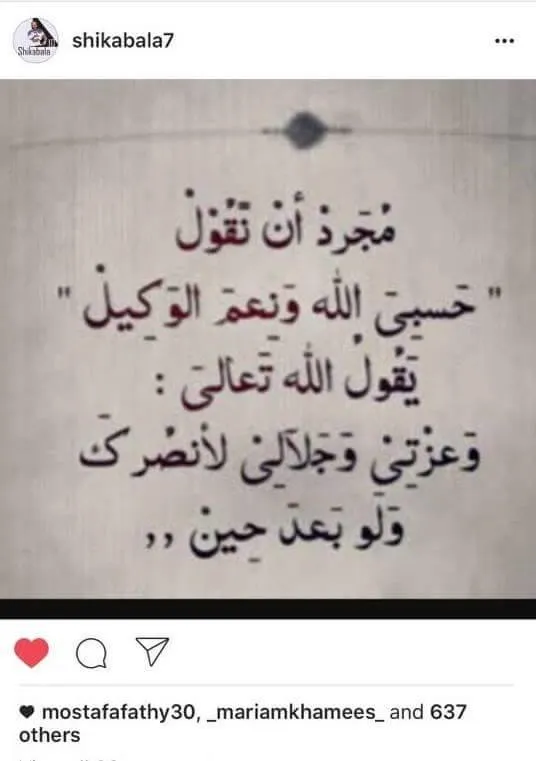 Shikabala
shikabala7
مُجَردْ أنْ تَقُوْلْ
" حَسبِيَ الله وَنِعمَ الوَكِيلْ "
يَقُولُ الله تَعالىَ :
وَعزْتِيْ وَجَلآلِيْ لأنصُركَ
وَلَو بَعدَ حِينْ ,,
mostafafathy30, _mariamkhamees_ and 637
others